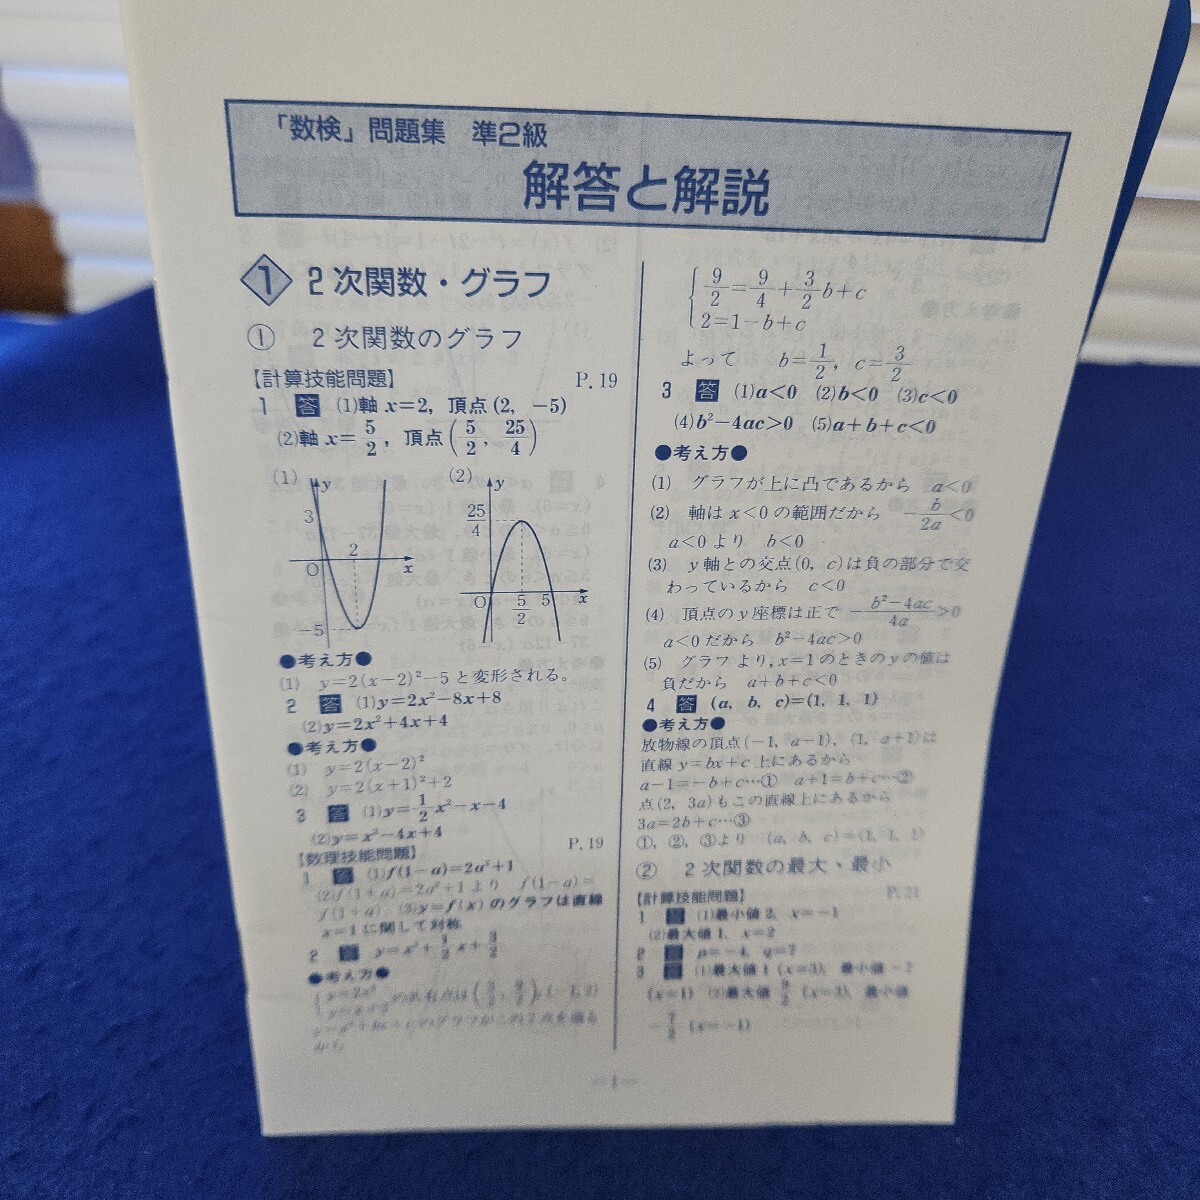 「数検」問題集 準2級
解答と解説
1 2次関数・グラフ
① 2次関数のグラフ
【計算技能問題】 P.19
1 答 (1)軸 x=2, 頂点(2, −5)
(2)軸 x=5/2, 頂点(5/2, 25/4)
(1) y 3 2 O x −5
(2) y 25/4 O 5/2 5 x
●考え方●
(1) y=2(x−2)²−5と変形される。
2 答 (1)y=2x²−8x+8
(2)y=2x²+4x+4
●考え方●
(1) y=2(x−2)²
(2) y=2(x+1)²+2
3 答 (1)y=1/2x²−x−4
(2)y=x²−4x+4
【数理技能問題】 P.19
1 答 (1)f(1−a)=2a²+1
(2)f(1+a)=2a²+1より f(1−a)=
f(1+a) (3)y=f(x)のグラフは直線
x=1に関して対称
2 答 y=x²+1/2x+3/2
●考え方●
{9/2=9/4+3/2b+c
2=1−b+c
よって b=1/2, c=3/2
3 答 (1)a<0 (2)b<0 (3)c<0
(4)b²−4ac>0 (5)a+b+c<0
●考え方●
(1) グラフが上に凸であるから a<0
(2) 軸はx<0の範囲だから −b/2a<0
a<0より b<0
(3) y軸との交点(0, c)は負の部分で交
わっているから c<0
(4) 頂点のy座標は正で −b²−4ac/4a>0
a<0だから b²−4ac>0
(5) グラフより, x=1のときのyの値は
負だから a+b+c<0
4 答 (a, b, c)=(1, 1, 1)
●考え方●
放物線の頂点(−1, a−1), (1, a+1)は
直線y=bx+c上にあるから
a−1=−b+c…① a+1=b+c…②
点(2, 3a)もこの直線上にあるから
3a=2b+c…③
①, ②, ③より (a, b, c)=(1, 1, 1)
② 2次関数の最大・最小
【計算技能問題】 P.21
1 答 (1)最小値2, x=−1
(2)最大値1, x=2
2 答 p=−4, q=7
3 答 (1)最大値1 (x=3), 最小値
(x=1) (2)最大値 (x=3), 最小値
(x=−1)
—1—